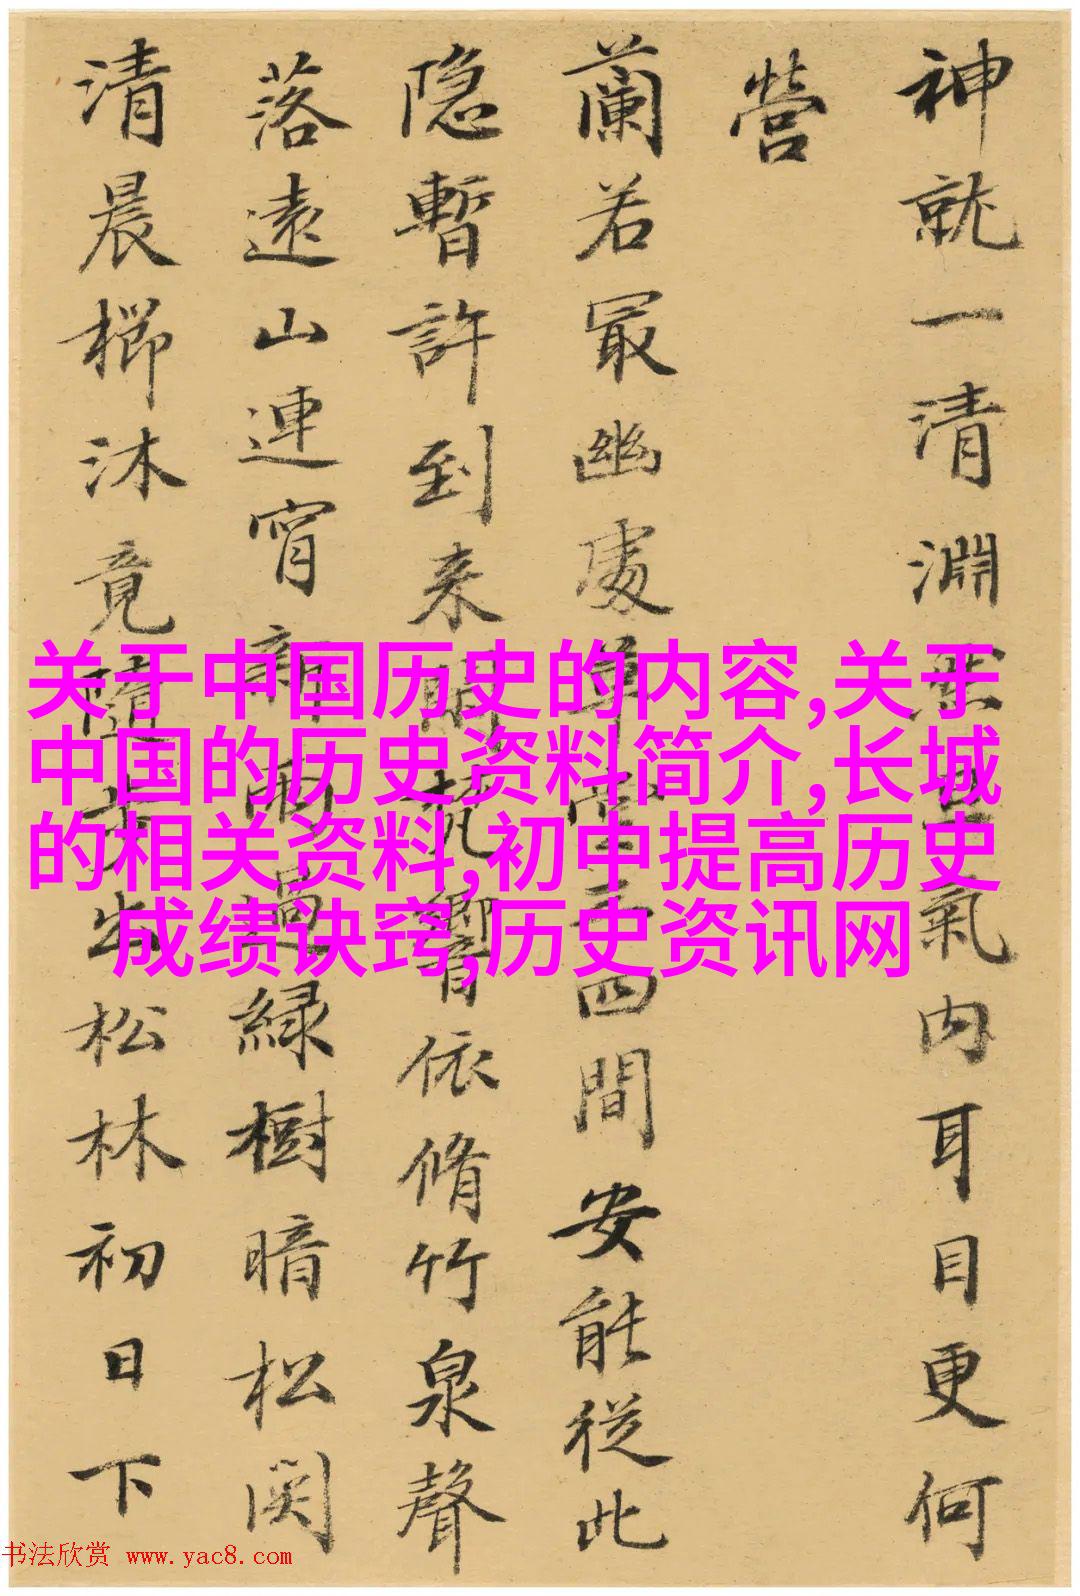 神就一清淵默坐氣内耳目更何
營
蘭若冣幽處草堂三四間安能從此
隐暫許到来間梵響依脩竹泉聲
落遠山連宵新雨過緑樹暗松関
清晨櫛沐竟隨步出松林初日下
关于中国历史的内容,关于
中国的历史资料简介,长城
的相关资料,初中提高历史
成绩诀窍,历史资讯网
书法欣赏 www.yac8.com